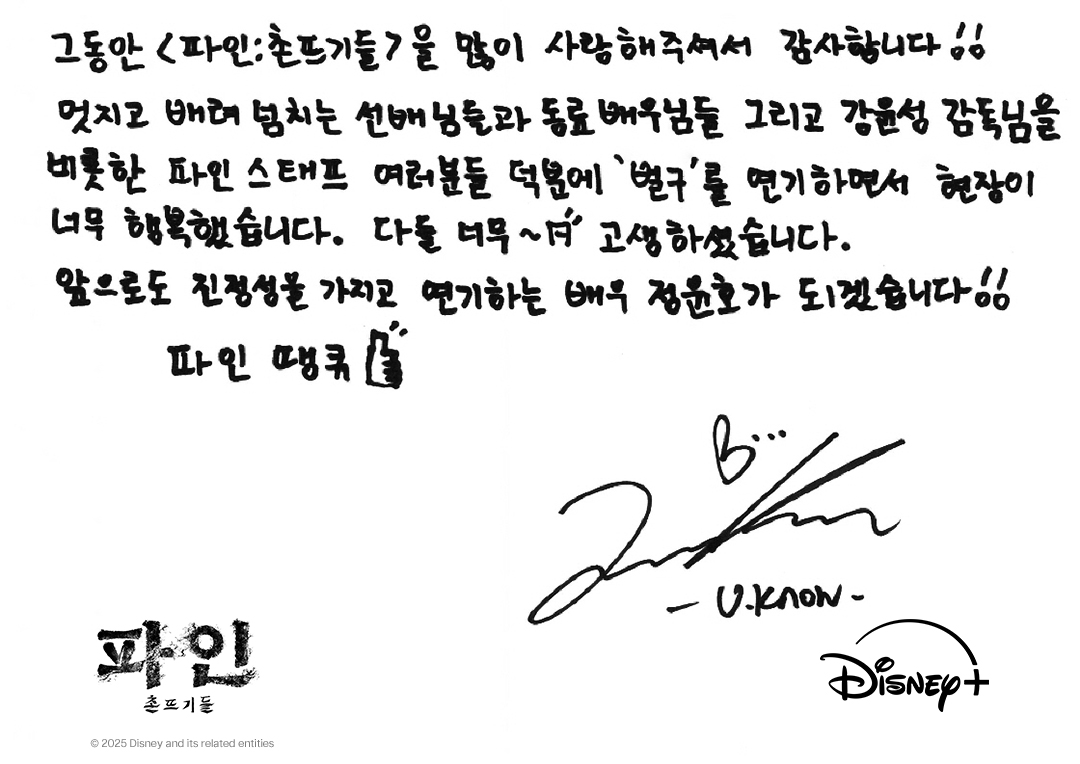 그동안 <파인:촌뜨기들>을 많이 사랑해주셔서 감사합니다!!
멋지고 배려 넘치는 선배님들과 동료배우님들 그리고 강윤성 감독님을
비롯한 파인 스태프 여러분들 덕분에 '벌구'를 연기하면서 현장이
너무 행복했습니다. 다들 너무~ 고생하셨습니다.
앞으로도 진정성을 가지고 연기하는 배우 정윤호가 되겠습니다!!
파인 땡큐
B...
- U.KNOW -
파인
촌뜨기들
Disney+
© 2025 Disney and its related entities